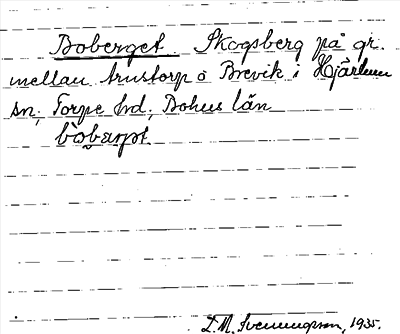 Boberget. Skogsberg på gr.
mellan Anstorp o Brevik i Hjärtum
sn, Torpe hd, Bohus län
D. M. Svenningson, 1935.